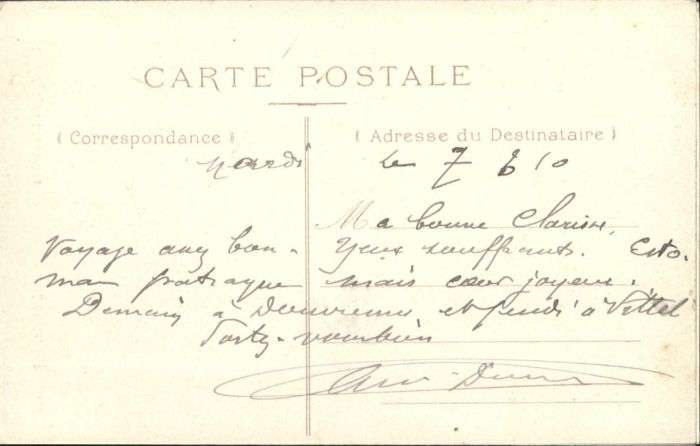 CARTE POSTALE
( Correspondance )
( Adresse du Destinataire )
Mardi le 7 6 10
Ma bonne Clarisse,
Voyage assez bon. Yeux souffrants. Esto-
mac patraque mais cœur joyeux.
Demain à et jeudi à Vittel
Portez-vous bien